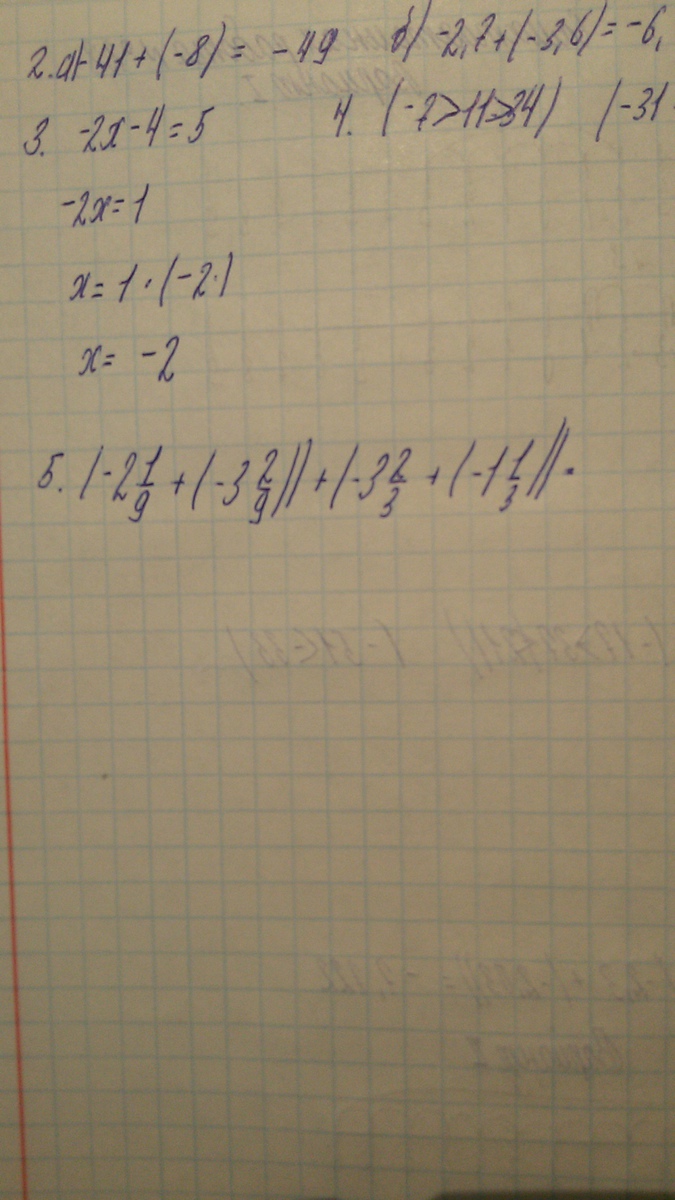 2. а) -41 + (-8) = -49 б) -2,7 + (-3,6) = -6,
3. -2x - 4 = 5 4. (-7 > 11 > 34) (-31
-2x = 1
x = 1 · (-2)
x = -2
5. (-2 1/9 + (-3 2/9)) + (-3 2/3 + (-1 1/3)) =